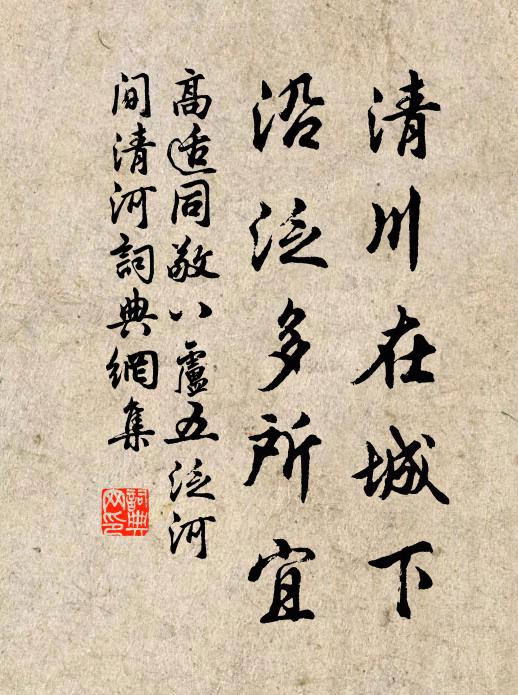 清川在城下
沿泛多所宜
高适同敬八盧五泛河
间清河詞典網集
詞典
网印